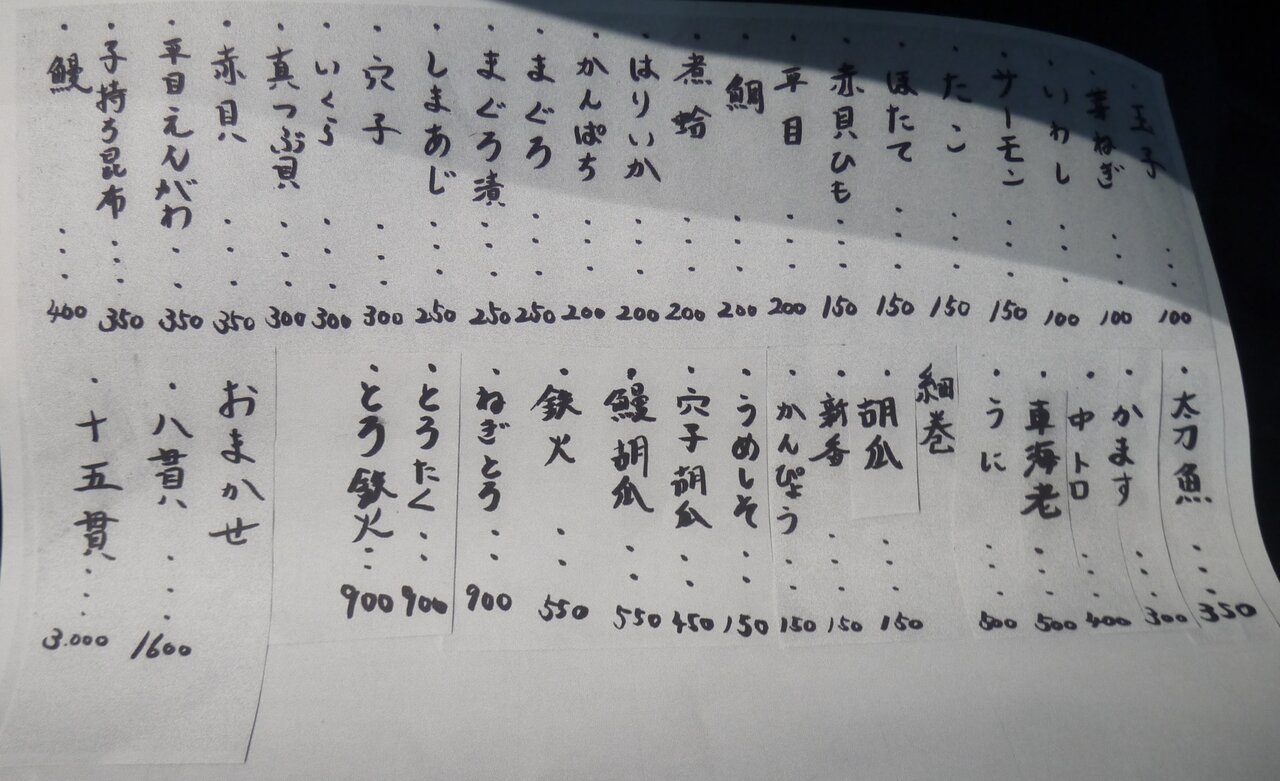 ・玉子・・・100
・芽ねぎ・・・100
・いわし・・・100
・サーモン・・・150
・たこ・・・150
・ほたて・・・150
・赤貝ひも・・・150
・平目・・・200
・鯛・・・200
・煮蛤・・・200
・はりいか・・・200
・かんぱち・・・200
・まぐろ・・・250
・まぐろ漬・・・250
・しまあじ・・・250
・穴子・・・300
・いくら・・・300
・真つぶ貝・・・300
・赤貝・・・350
・平目えんがわ・・・350
・子持ち昆布・・・350
・鰻・・・400
・太刀魚・・・350
・かます・・・300
・中トロ・・・400
・車海老・・・500
・うに・・・500
細巻
・胡瓜・・・150
・新香・・・150
・かんぴょう・・・150
・うめしそ・・・150
・穴子胡瓜・・・450
・鰻胡瓜・・・550
・鉄火・・・550
・ねぎとろ・・900
・とろたく・・900
・とろ鉄火・・900
おまかせ
・八貫・・・1600
・十五貫・・・3.000